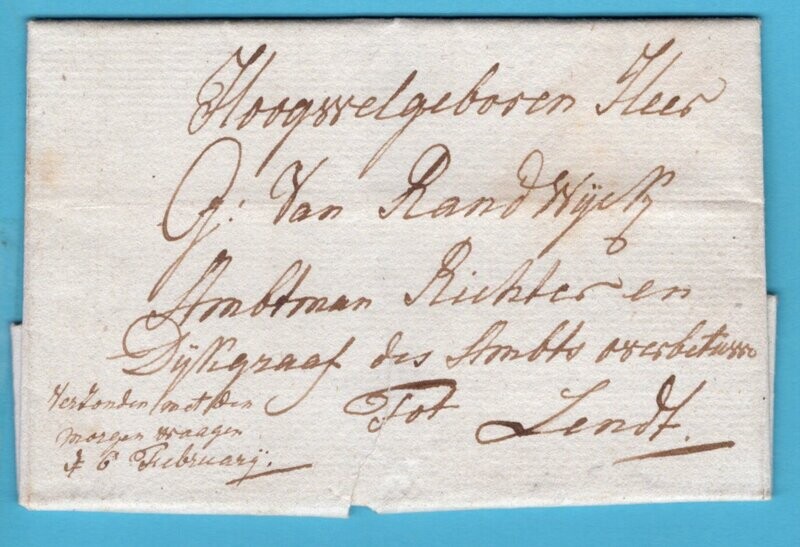 Hoogwelgeboren Heer
G: Van RandWijck
Ambtman Richter en
Dijkgraaf des Ambts overbetuwe
Tot Lendt.
Verzonden met den
morgen waagen
d 6 Februarij.